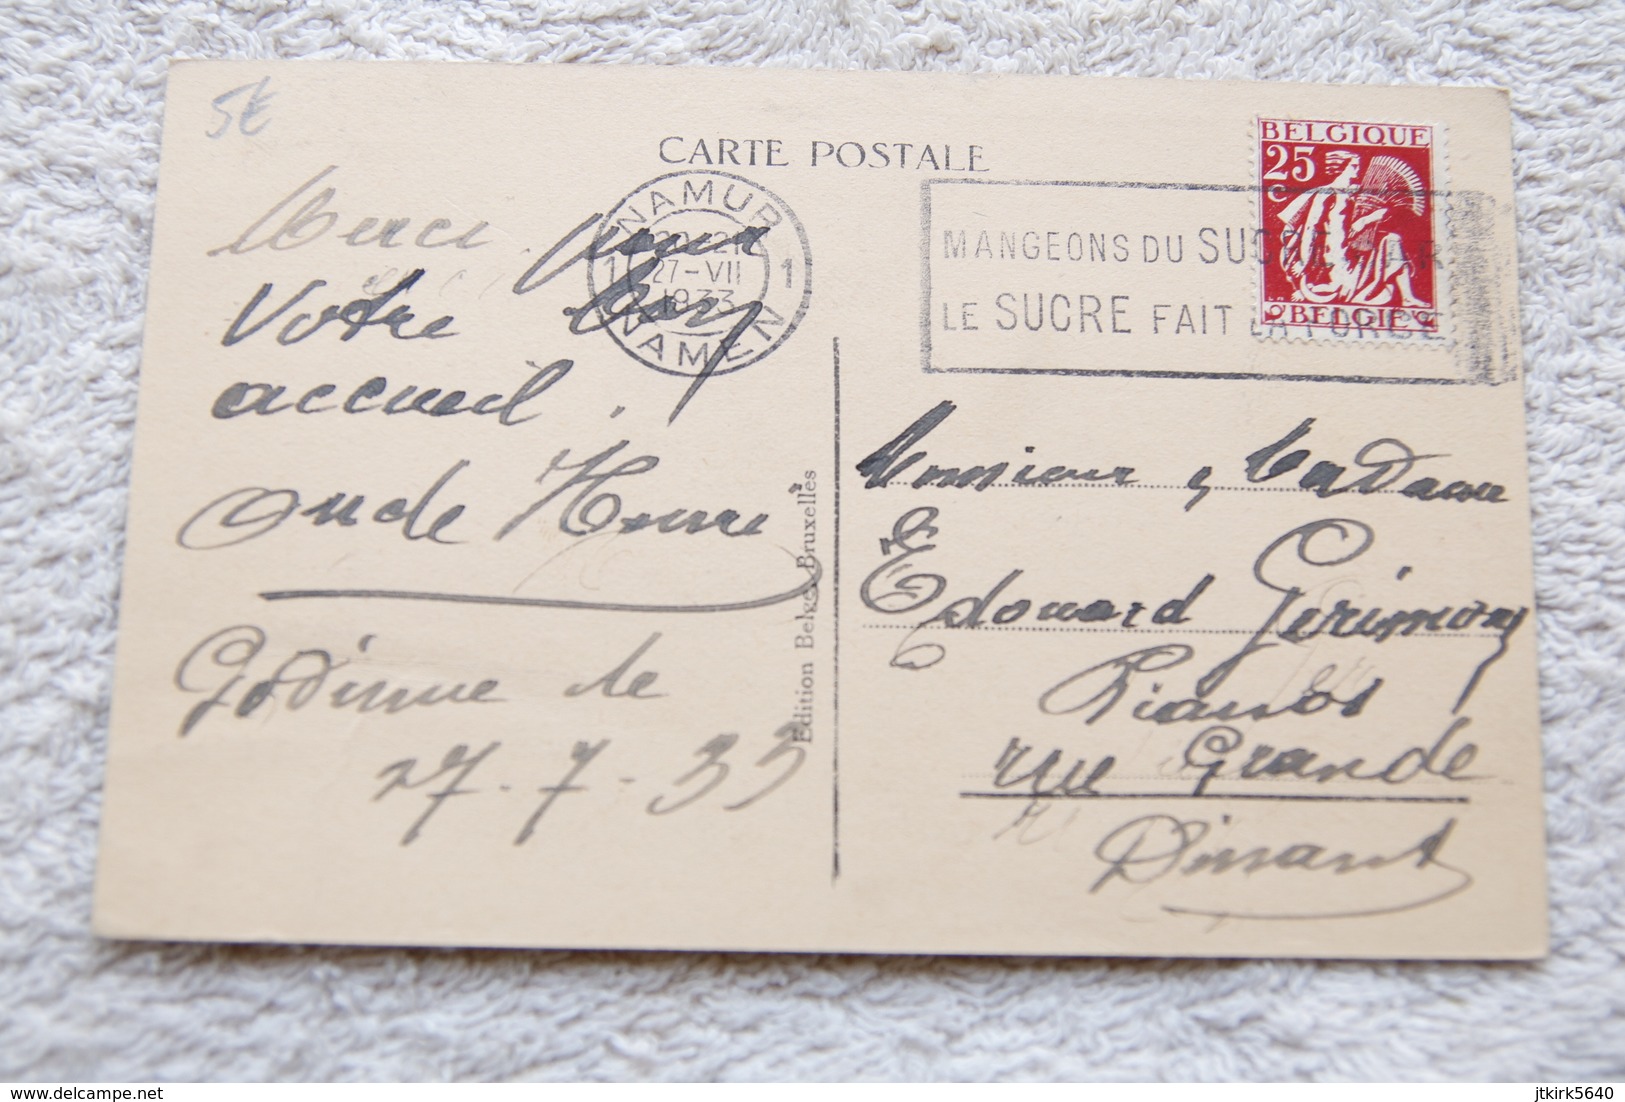 5€
CARTE POSTALE
BELGIQUE
25
C
BELGIE
NAMUR
27-VII
1933
1 1
NAMEN
MANGEONS DU SUCRE CAR
LE SUCRE FAIT LA FORCE
Merci pour
Votre bon
accueil.
Oncle Henri
Godinne le
27-7-33
Edition Belge, Bruxelles
Monsieur & Madame
Edouard Gérimont
Pianos
rue Grande
Dinant
delcampe.net
jtkirk5640